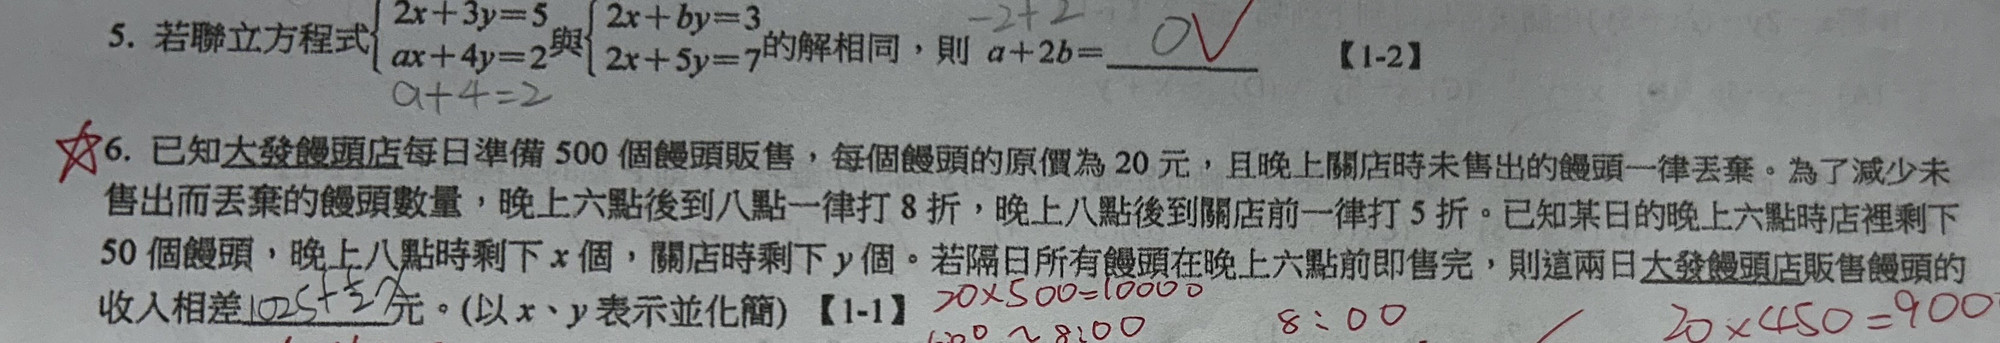 5. 若聯立方程式{2x+3y=5 ax+4y=2 與{2x+by=3 2x+5y=7 的解相同，則 a+2b= 0 【1-2】
-2+2
a+4=2
☆6. 已知大發饅頭店每日準備 500 個饅頭販售，每個饅頭的原價為 20 元，且晚上關店時未售出的饅頭一律丟棄。為了減少未
售出而丟棄的饅頭數量，晚上六點後到八點一律打 8 折，晚上八點後到關店前一律打 5 折。已知某日的晚上六點時店裡剩下
50 個饅頭，晚上八點時剩下 x 個，關店時剩下 y 個。若隔日所有饅頭在晚上六點前即售完，則這兩日大發饅頭店販售饅頭的
收入相差元。(以 x、y 表示並化簡) 【1-1】
20×500=10000
8:00
8:00
20×450=900